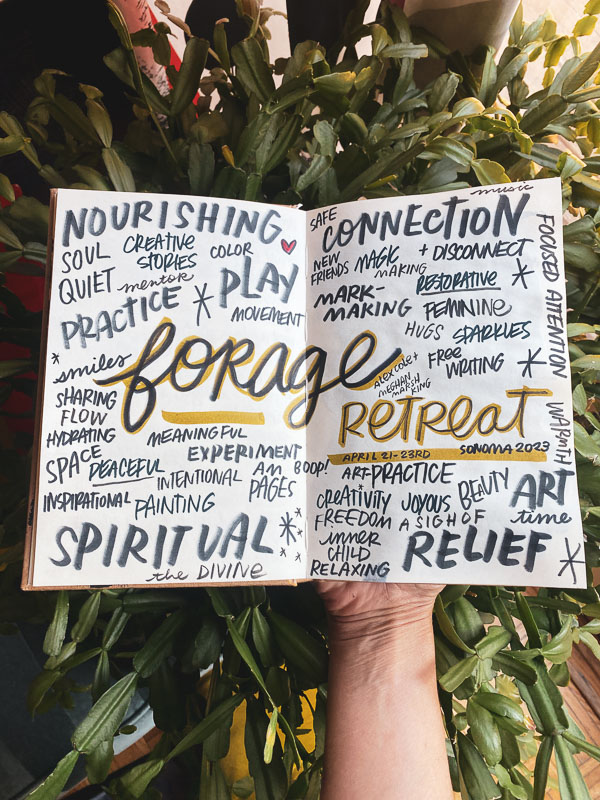 NOURISHING
SOUL
CREATIVE
STORIES
COLOR
QUIET
mentor
PLAY
PRACTICE
MOVEMENT
smiles
forage
SHARING
FLOW
HYDRATING
MEANINGFUL
SPACE
PEACEFUL
EXPERIMENT
INTENTIONAL
AM
PAGES
INSPIRATIONAL
PAINTING
SPIRITUAL
the DIVINE
music
SAFE
CONNECTION
NEW
FRIENDS
MAGIC
MAKING
+ DISCONNECT
RESTORATIVE
MARK-
MAKING
FEMININE
HUGS
SPARKLES
FREE
WRITING
FOCUSED ATTENTION
WARMTH
ALEX COLE +
MEGHAN
MARSH
KING
RETREAT
APRIL 21-23RD
SONOMA 2023
BOOP!
ART PRACTICE
CREATIVITY
JOYOUS
BEAUTY
ART
time
FREEDOM
A SIGH OF
RELIEF
inner
CHILD
RELAXING